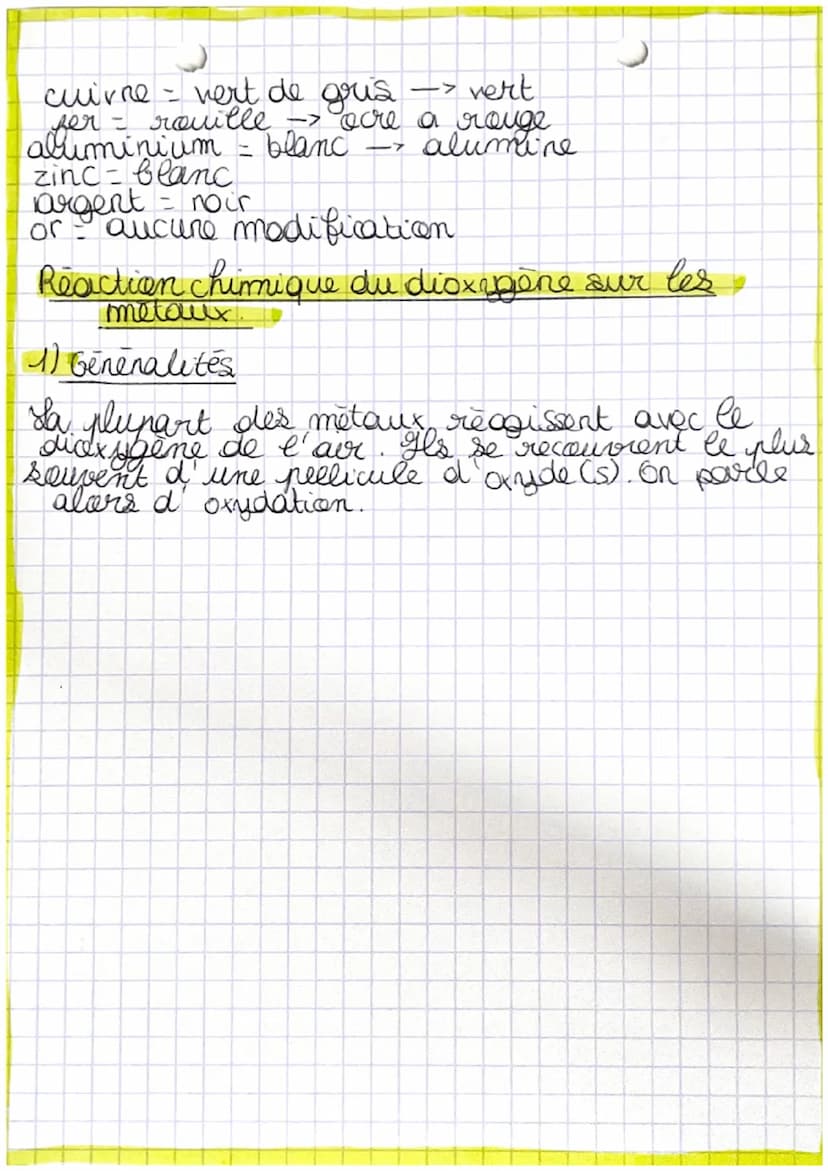 cuivre = vert de gris -> vert
fer = rouille -> ocre a rouge
alluminium = blanc -> alumine
zinc = blanc
argent = noir
or = aucune modification
Réaction chimique du dioxygène sur les
métaux.
1) Généralités
La plupart des métaux réagissent avec le
dioxygène de l'air. Ils se recouvrent le plus
souvent d'une pellicule d'oxyde(s). On parle
alors d'oxydation.